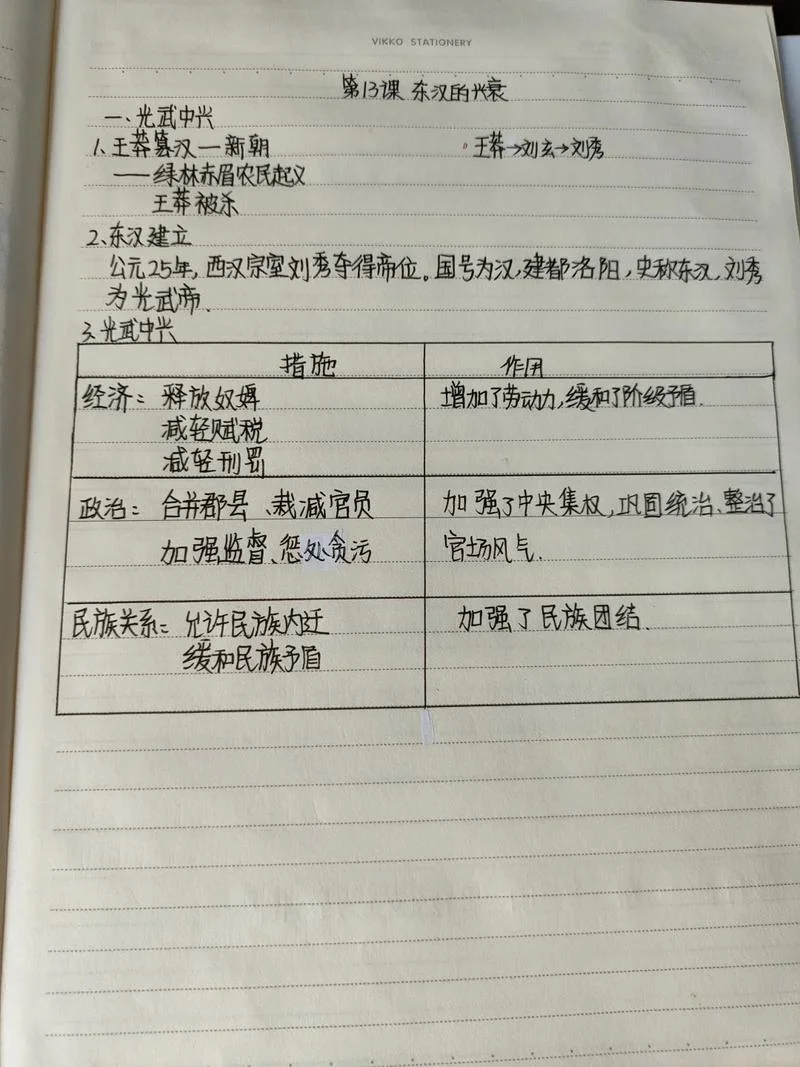 VIKKO STATIONERY
第13课 东汉的兴衰
一、光武中兴
1、王莽篡汉—新朝 王莽→刘玄→刘秀
——绿林赤眉农民起义
王莽被杀
2、东汉建立
公元25年,西汉宗室刘秀夺得帝位。国号为汉,建都洛阳,史称东汉,刘秀
为光武帝、
3、光武中兴
措施 作用
经济: 释放奴婢 增加了劳动力,缓和了阶级矛盾.
减轻赋税
减轻刑罚
政治: 合并郡县、裁减官员 加强了中央集权,巩固统治、整治了
加强监督、惩处贪污 官场风气.
民族关系: 允许民族内迁 加强了民族团结、
缓和民族矛盾